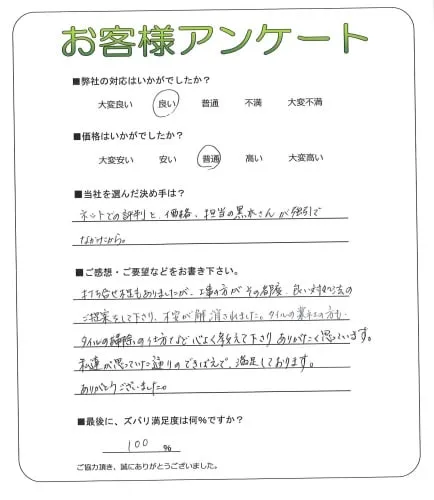 お客様アンケート
■弊社の対応はいかがでしたか？
大変良い 良い 普通 不満 大変不満
■価格はいかがでしたか？
大変安い 安い 普通 高い 大変高い
■当社を選んだ決め手は？
ネットでの評判と、価格、担当の黒木さんが強引で
なかったから。
■ご感想・ご要望などをお書き下さい。
打ち合せ不足もありましたが、工事の方がその都度、良い対処法の
ご提案をして下さり、不安が解消されました。タイルの業社の方も
タイルの掃除の仕方など心よく教えて下さりありがたく思っています。
私達が思っていた通りのできばえで、満足しております。
ありがとうございました。
■最後に、ズバリ満足度は何％ですか？
100 ％
ご協力頂き、誠にありがとうございました。